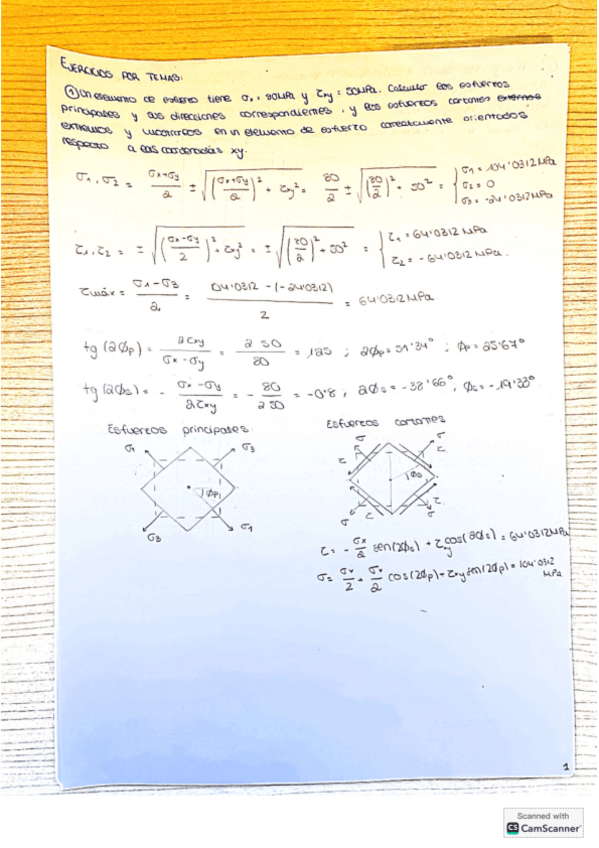 EJERCICIOS POR TEMAS:
① Un elemento de esfuerzo tiene σx = 80MPa y τxy = 50MPa. Calcular los esfuerzos
principales y sus direcciones correspondientes, y los esfuerzos cortantes externos
extremos y mostrarlos en un elemento de esfuerzo correctamente orientados
respecto a las coordenadas xy.
σ1, σ2 = (σx+σy)/2 ± √(((σx+σy)/2)² + τxy²) = 80/2 ± √((80/2)² + 50²) = { σ1 = 104'0312 MPa
σ2 = 0
σ3 = -24'0312 MPa
τ1, τ2 = ± √(((σx-σy)/2)² + τxy²) = ± √((80/2)² + 50²) = { τ1 = 64'0312 MPa
τ2 = -64'0312 MPa.
τmáx = (σ1-σ3)/2 = (104'0312 - (-24'0312))/2 = 64'0312 MPa
tg(2Φp) = 2τxy/(σx-σy) = 2·50/80 = 1'25 ; 2Φp = 51'34° ; Φp = 25'67°
tg(2Φs) = - (σx-σy)/(2τxy) = - 80/(2·50) = -0'8 ; 2Φs = -38'66°, Φs = -19'33°
Esfuerzos principales Esfuerzos cortantes
σ1 σ3 σ σ
τ τ
Φp Φs
τ τ
σ3 σ1 σ σ
τ = - σx/2 sen(2Φs) + τxy cos(2Φs) = 64'0312MPa
σ = σx/2 + σx/2 cos(2Φp) + τxy sen(2Φp) = 104'0312 MPa
1
Scanned with
CS CamScanner